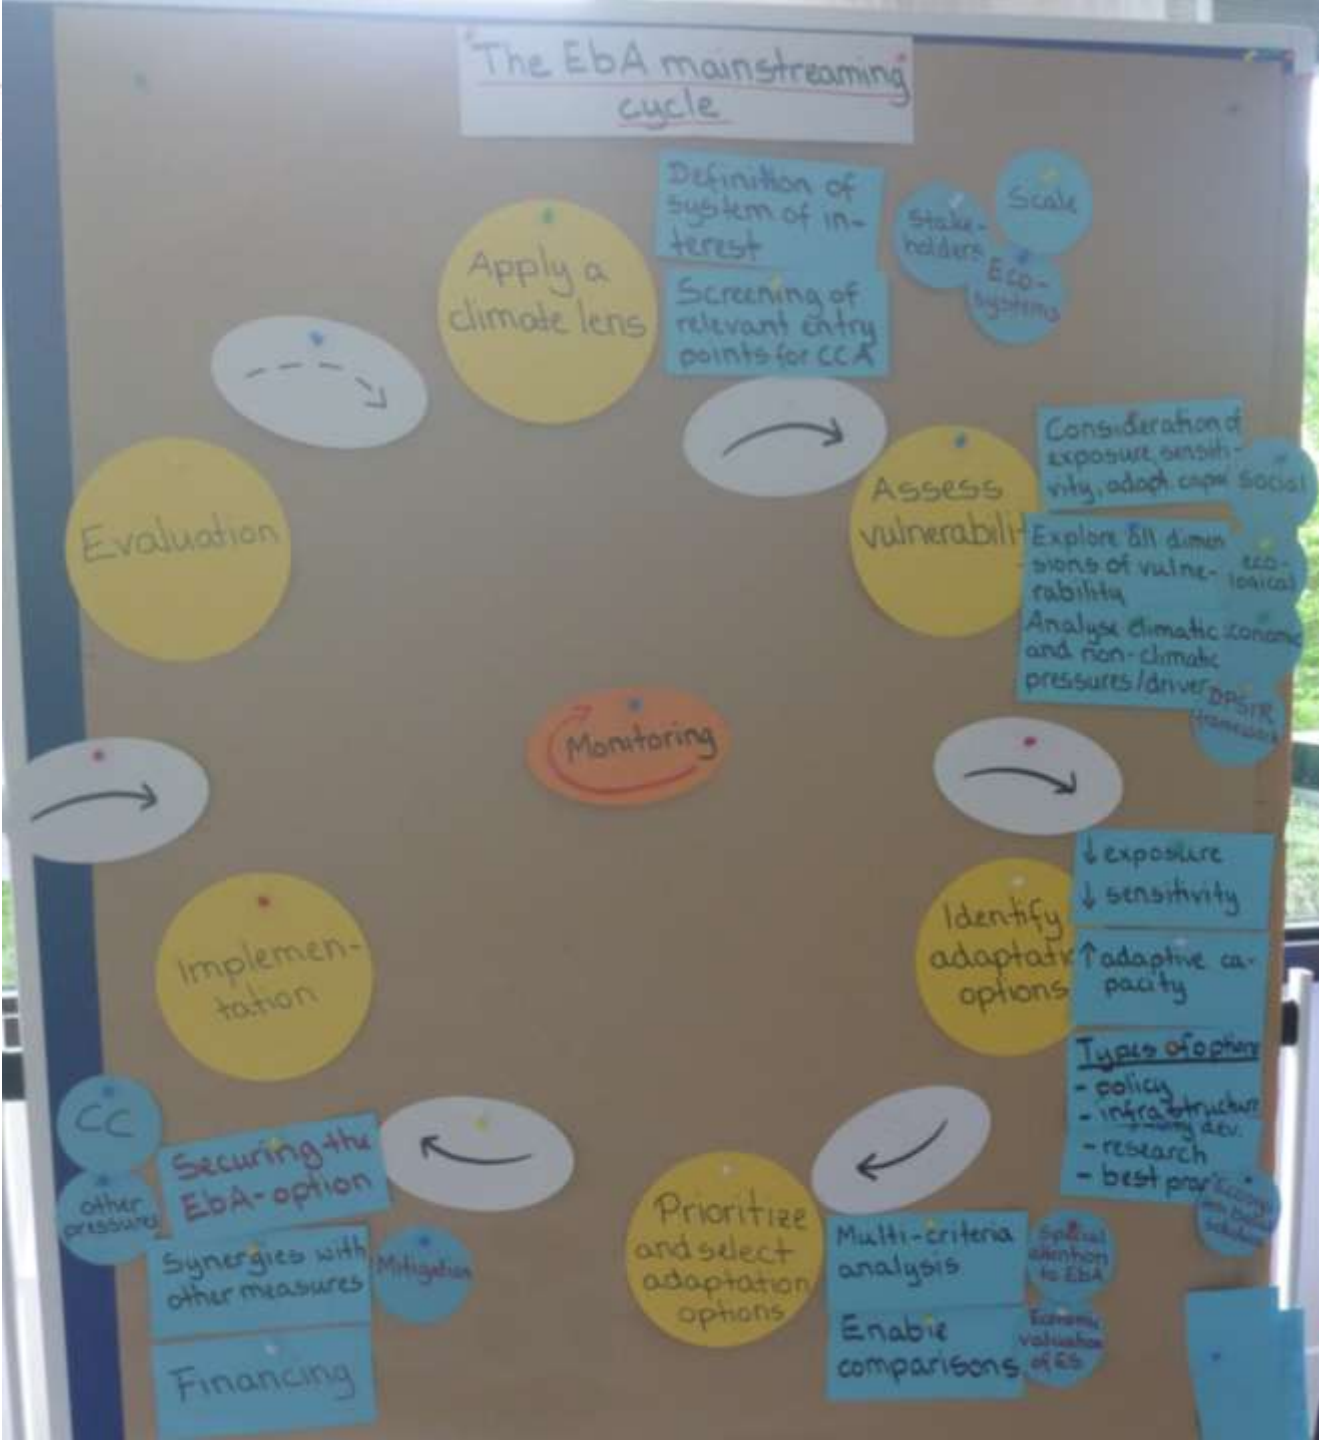 The EbA mainstreaming
cycle
Apply a
climate lens
Definition of
system of in-
terest
Screening of
relevant entry
points for CCA
Stake-
holders
Scale
Eco-
systems
Assess
vulnerabili
Consideration of
exposure, sensiti-
vity, adapt. capa
Social
Explore all dimen
sions of vulne-
rability
eco-
logical
Analyse climatic
and non-climatic
pressures/driver
conomic
DPSIR
framework
Identify
adaptati
options
↓ exposure
↓ sensitivity
↑ adaptive ca-
pacity
Types of options
- policy
- infrastructure
dev.
- research
- best prac
Prioritize
and select
adaptation
options
Multi-criteria
analysis
Special
attention
to EbA
Enable
comparisons
Economic
valuation
of ES
Implemen-
tation
CC
other
pressures
Securing the
EbA-option
Synergies with
other measures
Mitigation
Financing
Evaluation
Monitoring